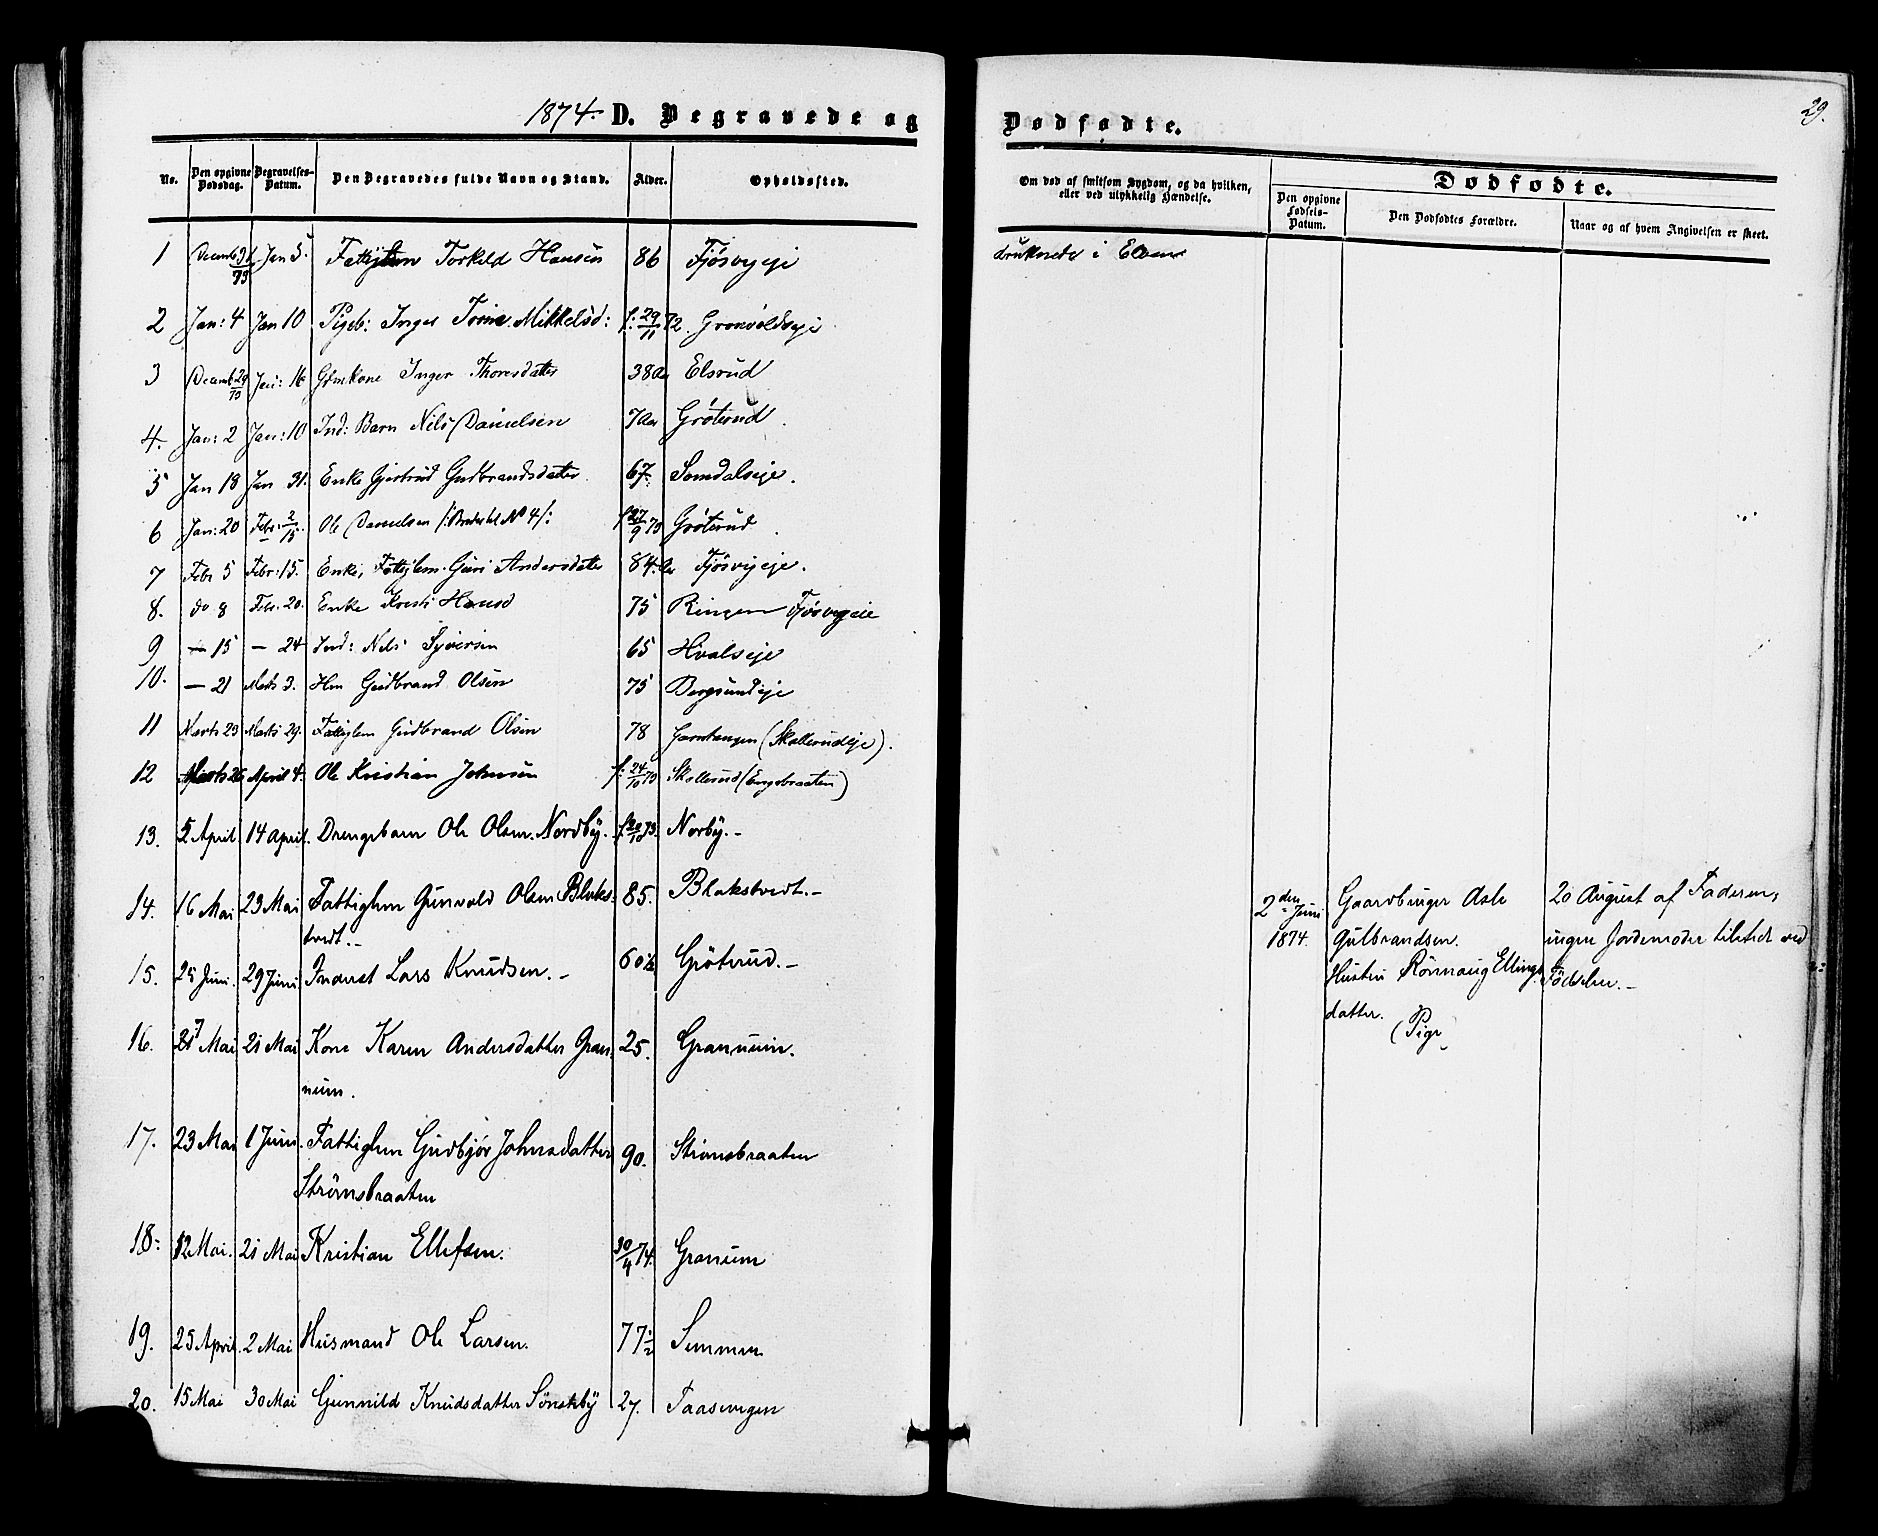 1874. D. Begravede og
No. Den opgivne Dødsdag. Begravelses-Datum. Den Begravedes fulde Navn og Stand. Alder. Opholdssted.
1 Decemb 31/73 Jan 5. Torkild Hansen 86 Fjøsvigeje
2 Jan: 4 Jan 10 Pigeb: Inger Mikkelsd: f: 29/11 72. Grønvoldeje
3 Decemb 29/73 Jan: 16 Gmkone Inger Thoresdatter 38 Aar Elsrud
4. Jan: 2 Jan: 10 Ind: Barn Nils Danielsen 7 Aar Grøterud
5 Jan 18 Jan 31. Enke Gjertrud Gudbrandsdatter 67. Somdalseje.
6 Jan: 20 Febr: 2/15. Ole Danielsen /: Broder til No 4 /: f 27/9 73 Grøterud
7 Febr 5 Febr: 15. Enke, Fattiglem Guri Andersdatter 84. Aar Fjøsvigeje.
8. do 8 Febr. 20. Enke Kristi Hansd 75 Ringen Fjøsvigeie
9 — 15 — 24 Ind: Nils Syversen 65 Hvalseje
10. — 21 Marts 3. Hm Gudbrand Olsen 75 Bergsundeje
11 Marts 23 Marts 29. Fattiglem Gudbrand Olsen 78 (Skollerudeje).
12 Marts 26 April 4. Ole Kristian Johnsen f: 24/10 73 Skollerud (Engebraaten)
13. 5 April. 14 April. Drengebarn Ole Olsen Nordby. Norby.-
14. 16 Mai 23 Mai Fattiglem Gunvold Olsen Blaks- 85. Blakstvedt.-
tvedt.-
15. 25 Juni. 29 Juni Inderst Lars Knudsen.- 60 1/2 Grøterud.-
16. 27 Mai 21 Mai Kone Karen Andersdatter Gran- 25. Granum.
num.
17. 23 Mai 1 Juni. Fattiglem Gudbjør Johnsdatter 90. Strømsbraaten
Strømsbraaten
18: 12 Mai. 21 Mai Kristian Ellefsen. 30/4 74. Granum
19. 25 April. 2 Mai Husmand Ole Larsen. 77 1/2 Semmen
20. 15 Mai 30 Mai Gunnild Knudsdatter Sønsteby 27. Taasevegen
Dødfødte. 29.
Om død af smitsom Sygdom, og da hvilken,
eller ved ulykkelig Hændelse.
Dødfødte.
Den opgivne Fødsels-Datum. Den Dødfødtes Forældre. Naar og af hvem Angivelsen er skeet.
druknede i Elven
2den Juni Gaardbruger Asle 20 August af Faderen,
1874. Gulbrandsen. ingen Jordemoder tilstede ved
Hustru Rønnaug Ellings- Fødselen.-
datter.
(Pige